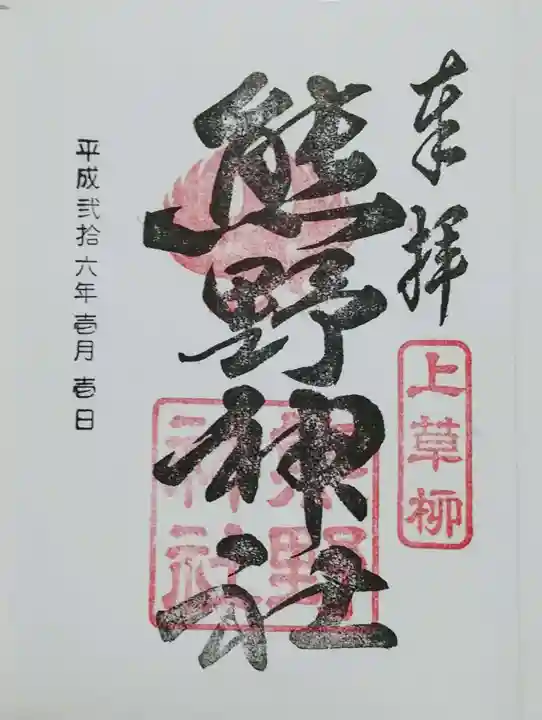 奉拝
上草柳
熊野神社
熊野
神社
平成弐拾六年壱月壱日